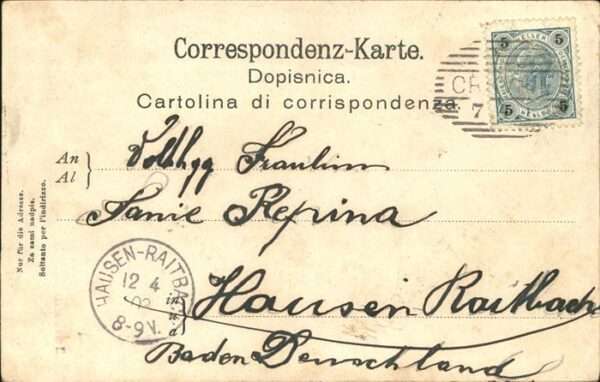 Correspondenz-Karte.
Dopisnica.
Cartolina di corrispondenza.
5 5
5 5
CR
7
An
Al
Fräulein
Fanie Repina
Hausen Raitbach
Baden Deuschland
in
na
HAUSEN-RAITBA
12 4
02
8-9V.
Nur für die Adresse.
Za sami nadpis.
Soltanto per l'indirizzo.